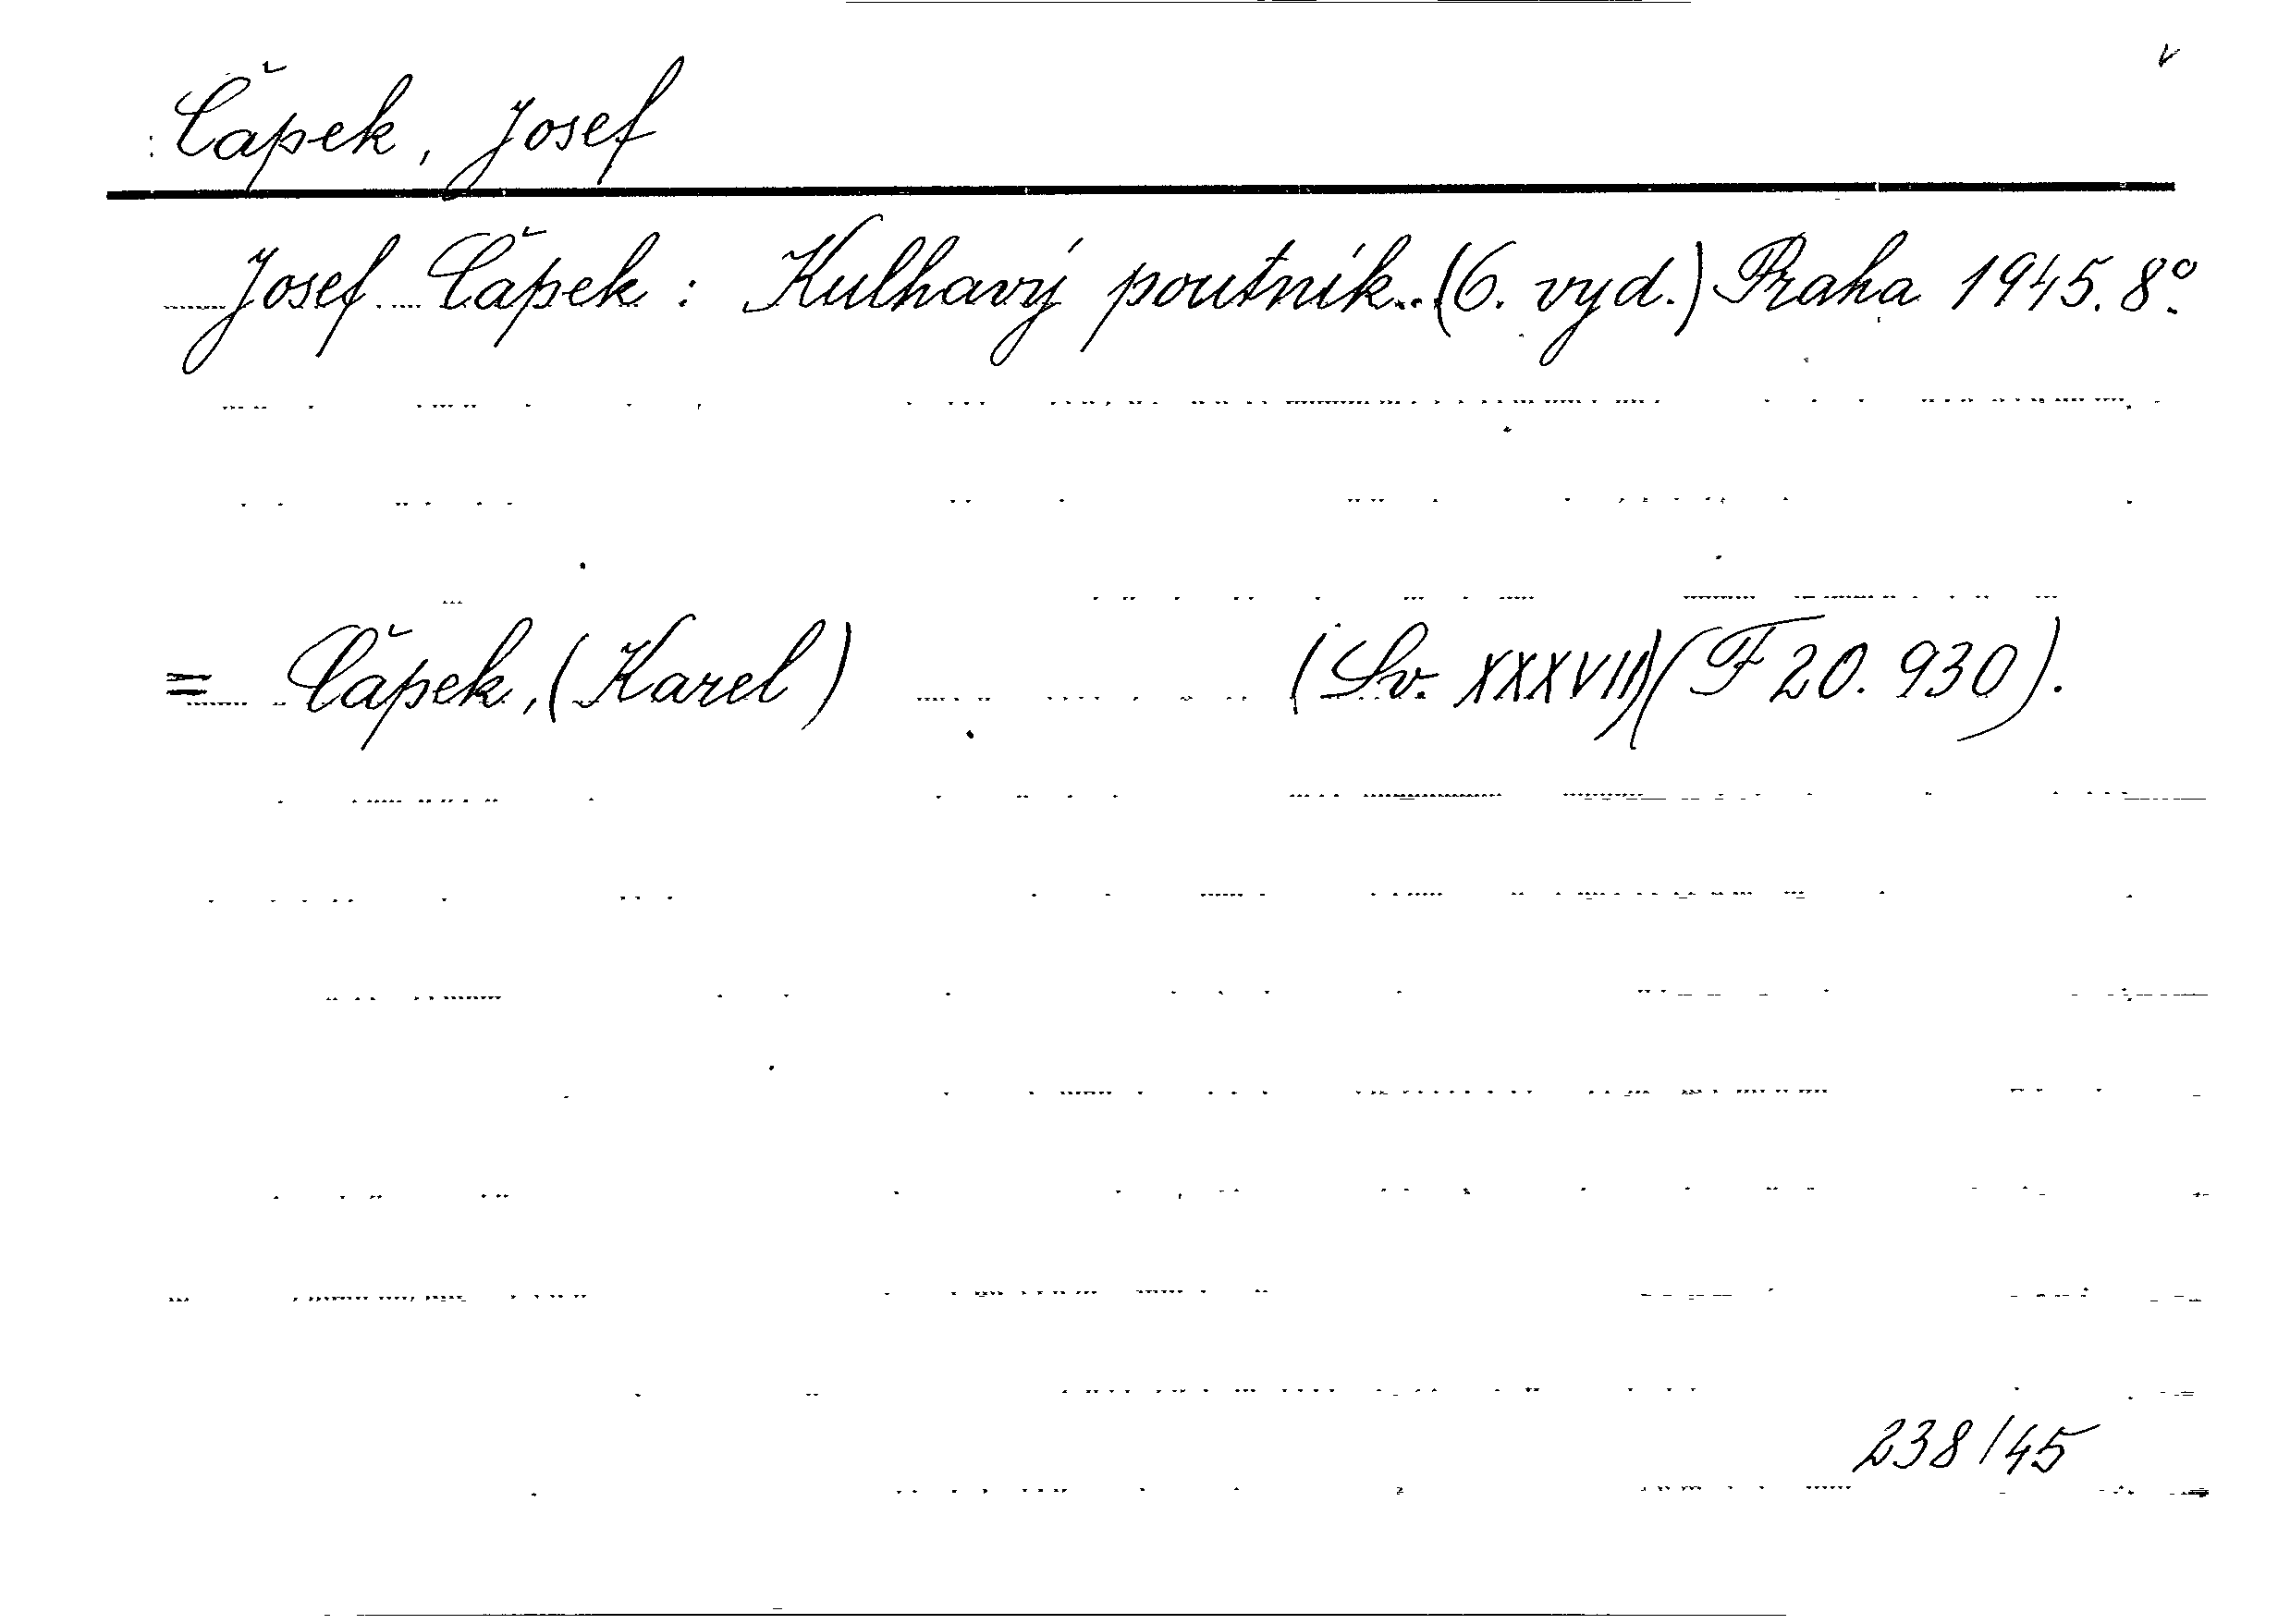 Čapek, Josef
Josef Čapek : Kulhavý poutník..(6. vyd.) Praha 1945. 8°.
= Čapek, (Karel) (Sv. XXXVII)(F 20. 930).
238/45